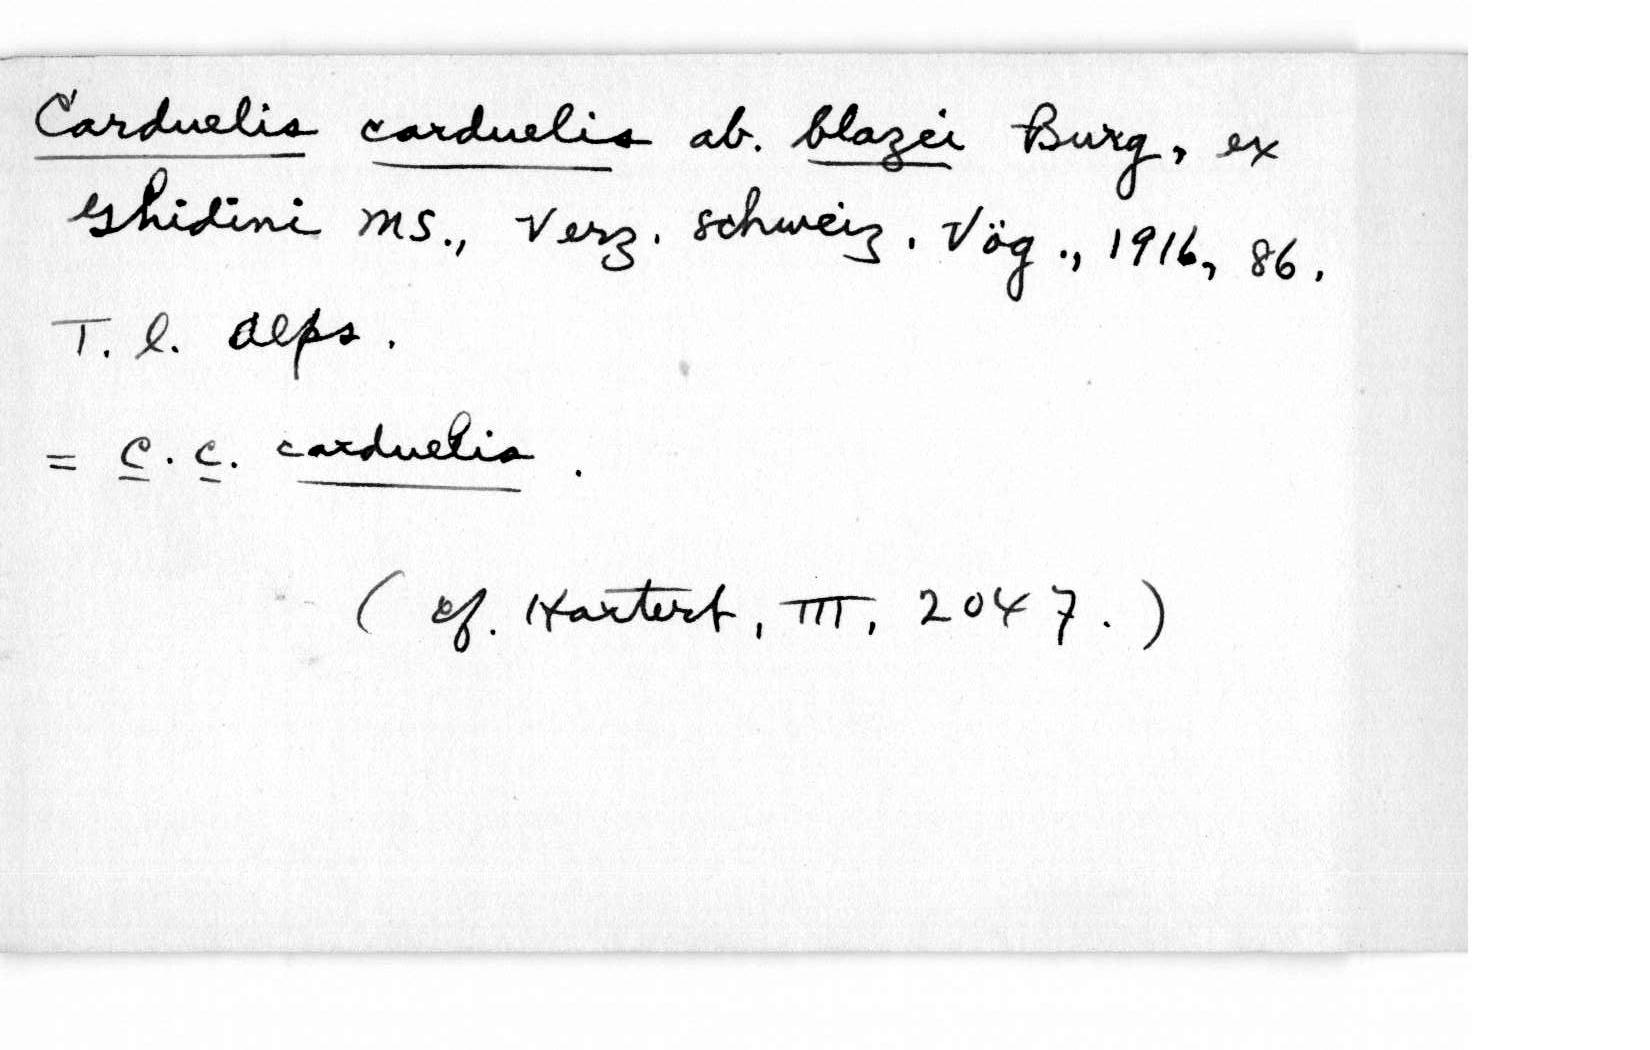 Carduelis carduelis ab. blazei Burg, ex
Ghidini MS., Verz. schweiz. Vög., 1916, 86.
T. l. Alps.
= C. c. carduelis.
(cf. Hartert, III, 2047.)